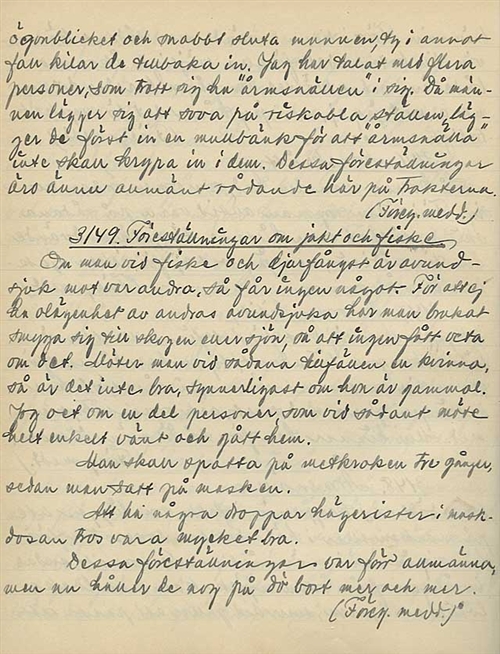 ögonblicket och snabbt sluta munnen, ty i annat
fall kilar de tillbaka in. Jag har talat med flera
personer, som trott sig ha "ärmsnällen" i sig. Då män-
nen lägger sig att sova på riskabla ställen, läg-
ger de först in en mullbänk för att "ärmsnälla"
inte skall krypa in i dem. Dessa föreställningar
äro ännu allmänt rådande här på trakterna.
(Förey. medd.)
3149. Föreställningar om jakt och fiske
Om man vid fiske och djurfångst är avund-
sjuk mot varandra, så får ingen något. För att ej
ha olägenhet av andras avundsjuka har man brukat
smyga sig till skogen eller sjön, så att ingen fått veta
om det. Möter man vid sådana tillfällen en kvinna,
så är det inte bra, synnerligast om hon är gammal.
Jag vet om en del personer, som vid sådant möte
helt enkelt vänt och gått hem.
Man skall spotta på metkroken tre gånger,
sedan man satt på masken.
Att ha några droppar i mask-
dosan tros vara mycket bra.
Dessa föreställningar var förr allmänna,
men nu håller de nog på dö bort mer och mer.
(Förey. medd.)